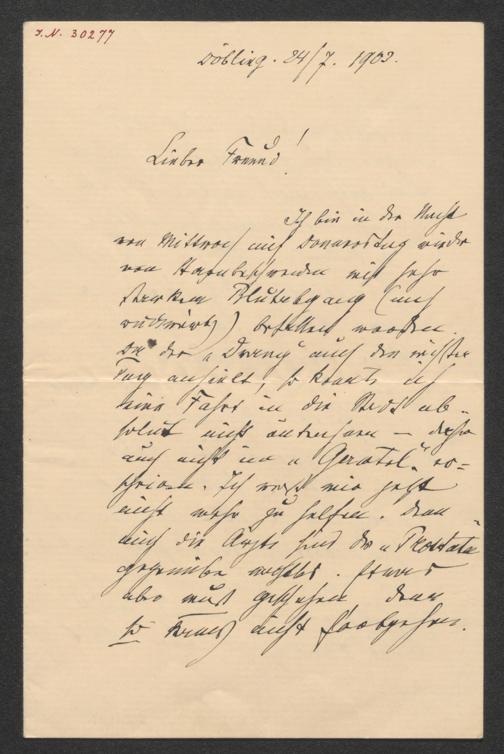 I.N. 30277
Döbling. 24/7. 1903.
Lieber Freund!
Ich bin in der Nacht
von Mittwoch auf Donnerstag wieder
von Harnbeschwerden mit sehr
starkem Blutabgang (auch
rückwärts) befallen worden.
Da der „Drang“ auch den nächsten
Tag anhielt, so konnte ich
eine Fahrt in die Stadt ab-
solut nicht antreten – daher
auch nicht im „ er-
scheinen. Ich weiß mir jetzt
nicht mehr zu helfen. Denn
auch die Ärzte sind der „Prostata“
gegenüber machtlos. Etwas
aber muß geschehen denn
so kann's nicht fortgehen.